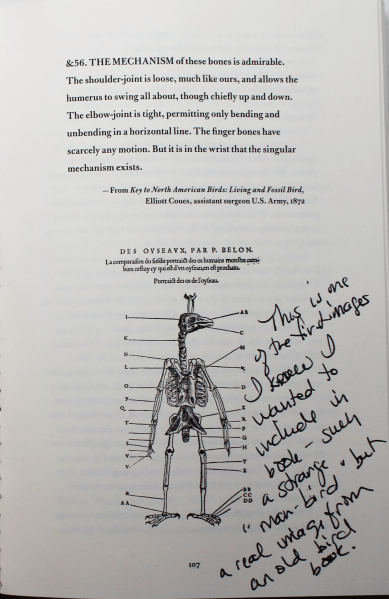 &56. THE MECHANISM of these bones is admirable.
The shoulder-joint is loose, much like ours, and allows the
humerus to swing all about, though chiefly up and down.
The elbow-joint is tight, permitting only bending and
unbending in a horizontal line. The finger bones have
scarcely any motion. But it is in the wrist that the singular
mechanism exists.
—From Key to North American Birds: Living and Fossil Bird,
Elliott Coues, assistant surgeon U.S. Army, 1872
DES OYSEAVX, PAR P. BELON.
La comparaison du susdit portraict des os humains monstre combien
cestuy cy qui est d'vn oyseau, en est prochain.
Portraict des os de l'oyseau.
AB
I
C
K
M
N
L
O
F
Q
X
T
R
P
G
I
H
V
Y
E
R
AA
BB
CC
DD
This is one
of the first images
I knew I
wanted to
include in
book - such
a strange
"man-bird" but
a real image from
an old bird
book.
107